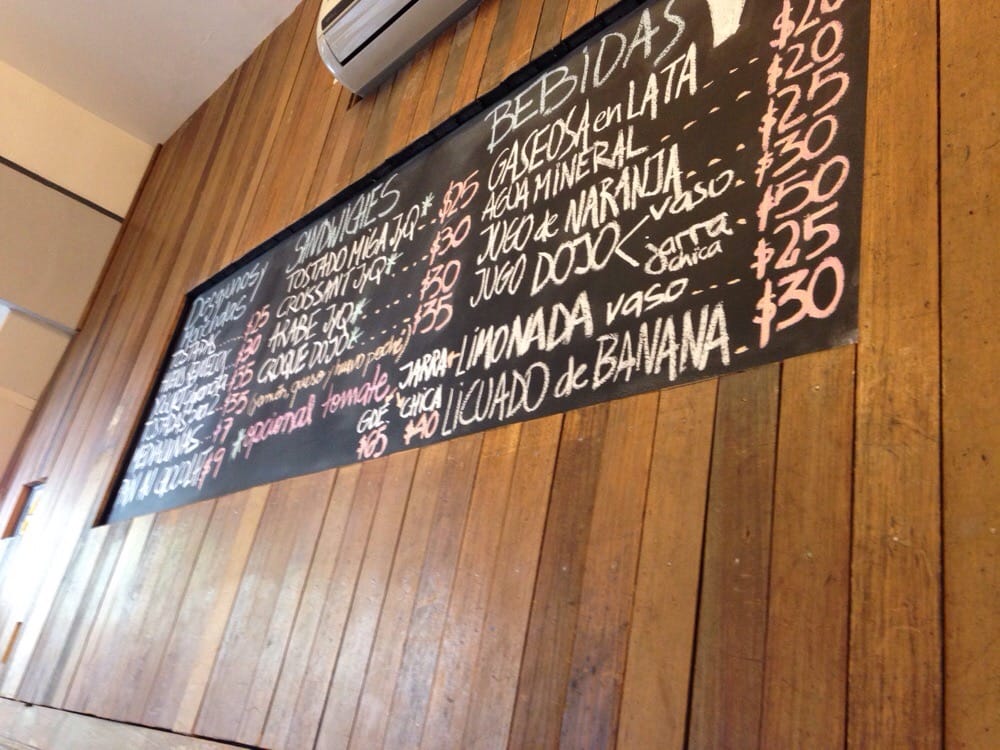 Desayunos y
Meriendas
TOSTADAS $25
HUEVOS $30
YOGURT $35
TOSTADAS $35
MEDIALUNAS $7
PAN AU CHOCOLAT $9
SANDWICHES
TOSTADO MIGA JyQ* $25
CROISSANT JyQ* $30
ARABE JyQ* $30
CROQUE DOJO* $35
(jamón, queso y huevo poché)
*opcional tomate
BEBIDAS
GASEOSA en LATA $20
AGUA MINERAL $20
JUGO de NARANJA $25
JUGO DOJO < vaso $30
jarra chica $50
JARRA LIMONADA vaso $25
GDE CHICA
$65 $40
LICUADO de BANANA $30